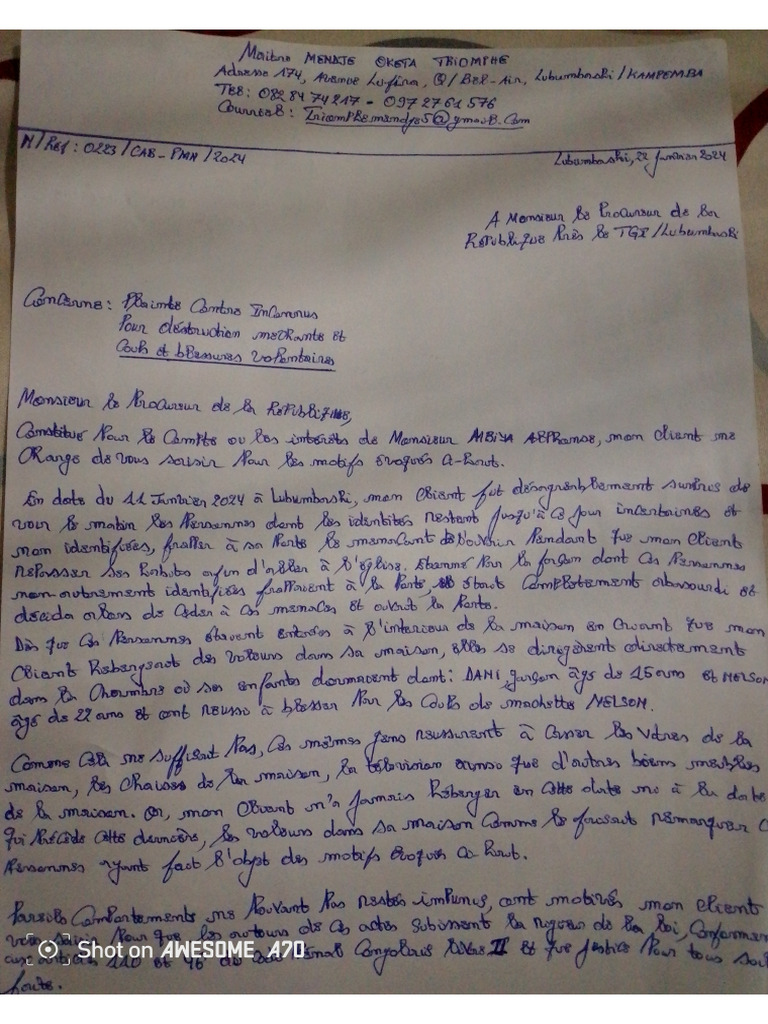 Maitre MENDJE OKETA TRIOMPHE
Adresse 174, Avenue Lufira, Q/Bel-Air, Lubumbashi/KAMPEMBA
Tel: 082 84 74 217 - 097 2761 576
Courriel: Triomphemendje5@gmail.Com
N/Réf: 0223/CAB-PMM/2024
Lubumbashi, 22 Janvier 2024
A Monsieur le Procureur de la
République Près le TGI/Lubumbashi
Concerne: Plainte Contre Inconnus
Pour déstruction mechante et
Coups et blessures volontaires
Monsieur le Procureur de la République,
Constitué Pour le Compte ou les intérêts de Monsieur MBIYA ALPHONSE, mon client me
Charge de vous saisir Pour les motifs évoqués ci-haut.
En date du 11 Janvier 2024 à Lubumbashi, mon Client fut désagréablement surpris de
voir le matin les Personnes dont les identités restent jusqu'à ce jour incertaines et
non identifiées, frapper à sa Porte le menaçant d'ouvrir Pendant que mon Client
repasser ses habits afin d'aller à l'église. Etonné Par la façon dont ces Personnes
non autrement identifiées frappaient à la Porte, il était Complètement abasourdi et
décida alors de Céder à ces menaces et ouvrit la Porte.
Dès que ces Personnes étaient entrées à l'intérieur de la maison en criant que mon
Client hébergerait des voleurs dans sa maison, elles se dirigèrent directement
dans la Chambre où ses enfants dormaient dont: DANI, garçon âgé de 15 ans et NELSON
âgé de 22 ans et ont réussi à blesser Par les Coups de machette NELSON.
Comme cela ne suffisait Pas, ces mêmes gens réussirent à Casser les vitres de la
maison, les Chaises de la maison, la télévision ainsi que d'autres biens meubles
de la maison. Or, mon Client n'a jamais héberger en cette date ni à la date
qui Précède cette dernière, les voleurs dans sa maison Comme le faisait remarquer
Personnes ayant fait l'objet des motifs évoqués ci-haut.
Pareils Comportements ne Pouvant Pas restés impunis, ont motivés mon Client
vous saisir Pour que les auteurs de ces actes Subissent la rigueur de la loi,
aux articles 110 et 46 du Code Pénal Congolais Livre II et que justice Pour tous soit
faite.
Shot on AWESOME A70